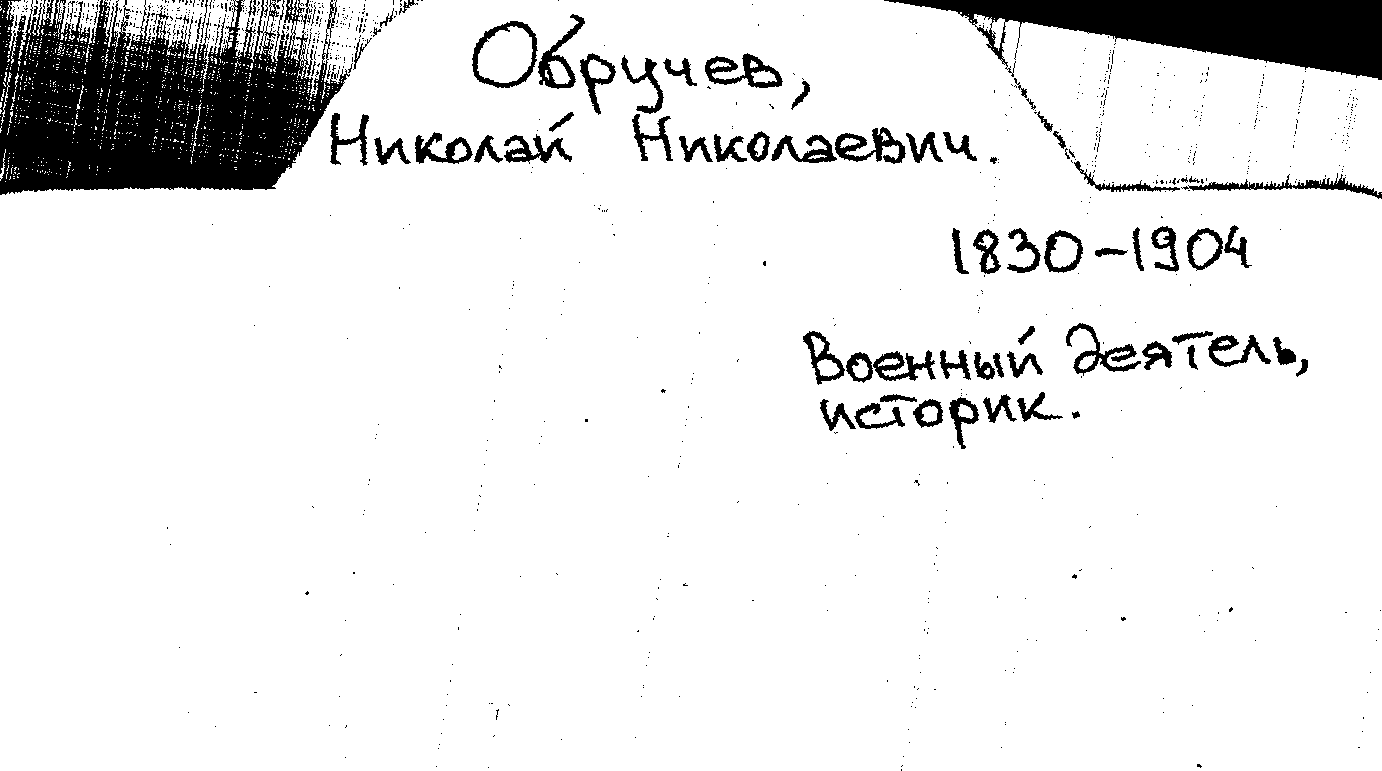 Обручев,
Николай Николаевич.
1830-1904
Военный деятель,
историк.